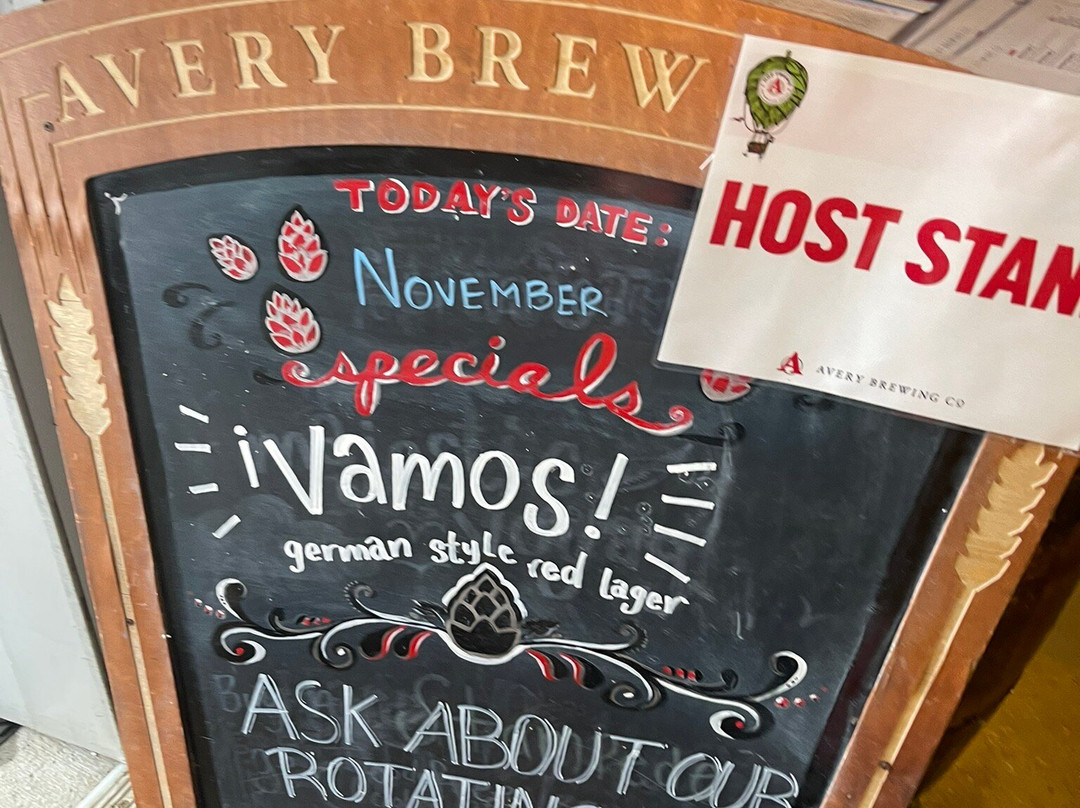 AVERY BREW
HOST STAN
AVERY BREWING CO
TODAY'S DATE:
NOVEMBER
specials
¡Vamos!
german style red lager
ASK ABOUT OUR
ROTATING